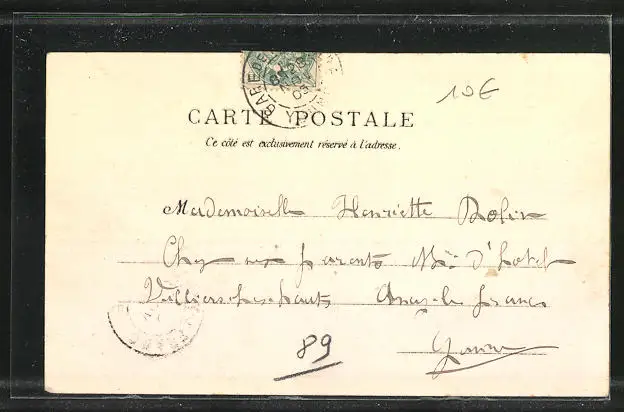 10€
CARTE POSTALE
Ce côté est exclusivement réservé à l'adresse.
Mademoiselle Henriette Dolin
Chez ses parents Md d'hotel
Villiers-les-hauts Ancy-le-franc
89 Yonne